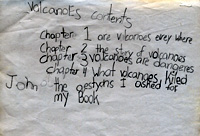 volcanoEs contents
Chapter 1 are volcanoes every where
Chapter 2 the story of volcanoes
Chapter 3 volcanoes are dangeres
chapter 4 What volcanoes killed
John The qestyons I asked for
my Book